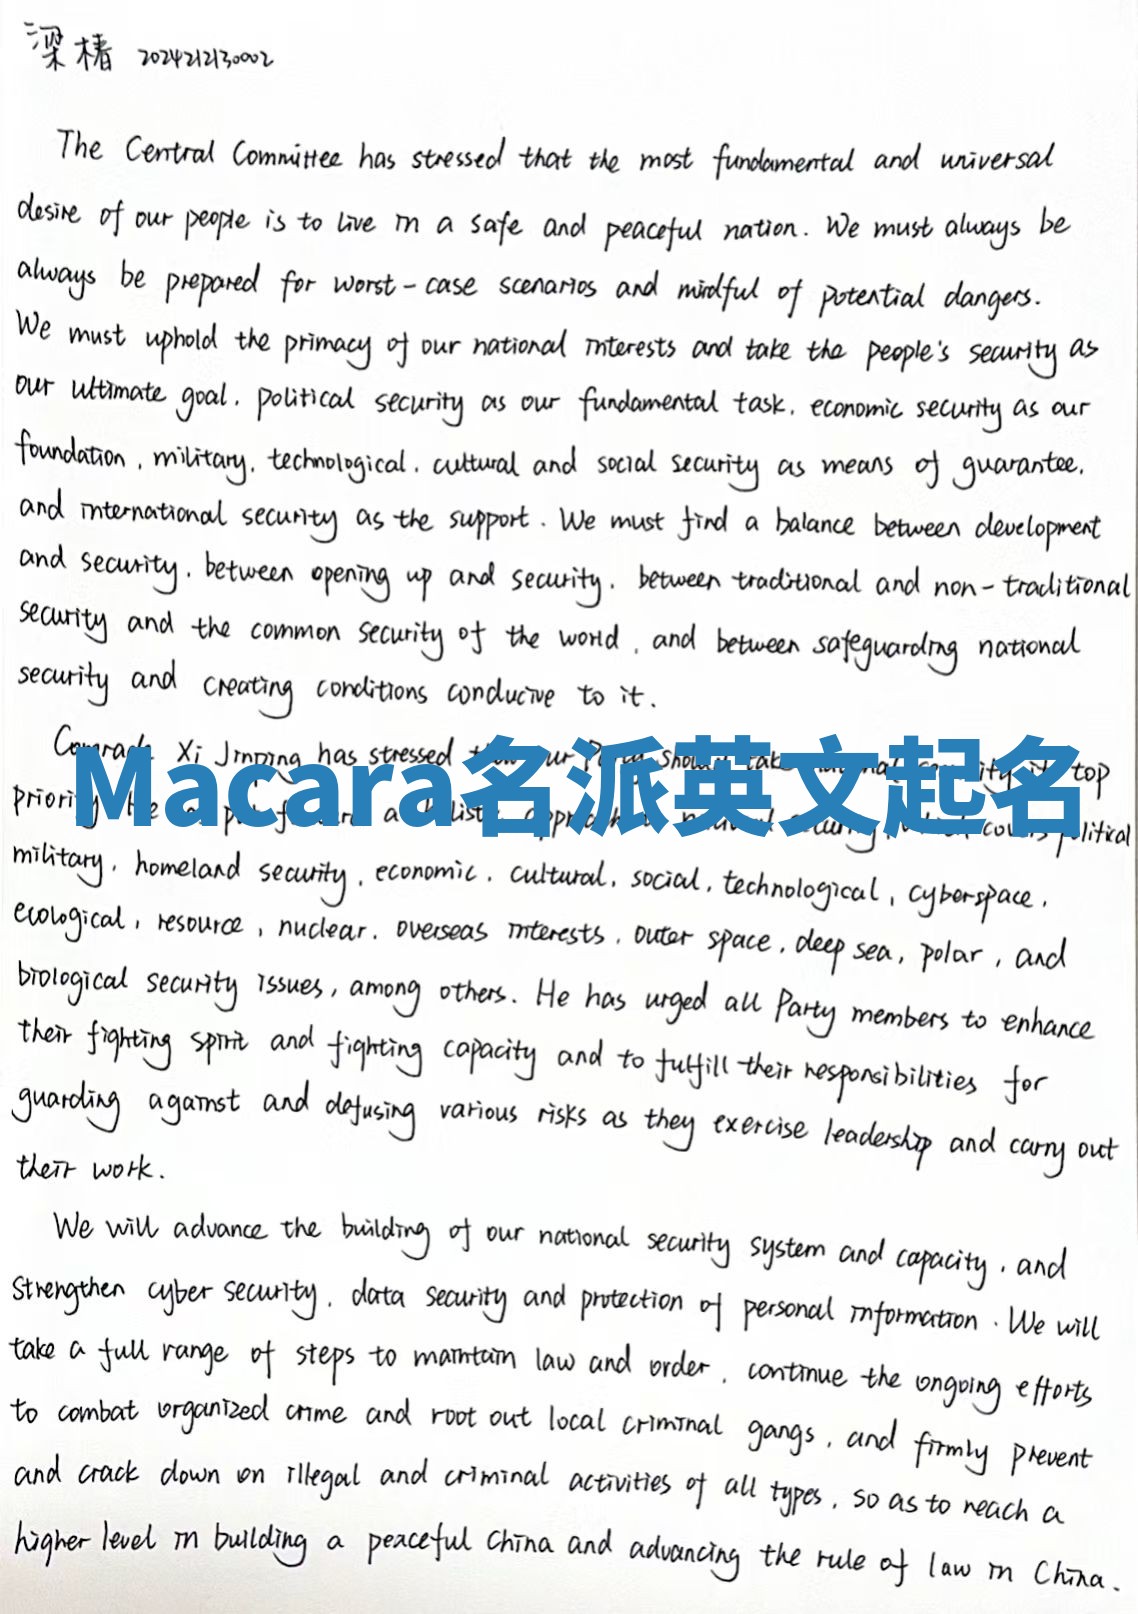 梁椿 2024212130002
The Central Committee has stressed that the most fundamental and universal
desire of our people is to live in a safe and peaceful nation. We must always be
always be prepared for worst-case scenarios and mindful of potential dangers.
We must uphold the primacy of our national interests and take the people's security as
our ultimate goal, political security as our fundamental task, economic security as our
foundation, military, technological, cultural and social security as means of guarantee,
and international security as the support. We must find a balance between development
and security, between opening up and security, between traditional and non-traditional
security and the common security of the world, and between safeguarding national
security and creating conditions conducive to it.
Comrade Xi Jinping has stressed our Party should take security its top
Macara名派英文起名
priority He put a political
military, homeland security, economic, cultural, social, technological, cyberspace,
ecological, resource, nuclear, overseas interests, outer space, deep sea, polar, and
biological security issues, among others. He has urged all Party members to enhance
their fighting spirit and fighting capacity and to fulfill their responsibilities for
guarding against and defusing various risks as they exercise leadership and carry out
their work.
We will advance the building of our national security system and capacity, and
strengthen cyber security, data security and protection of personal information. We will
take a full range of steps to maintain law and order, continue the ongoing efforts
to combat organized crime and root out local criminal gangs, and firmly prevent
and crack down on illegal and criminal activities of all types, so as to reach a
higher level in building a peaceful China and advancing the rule of law in China.